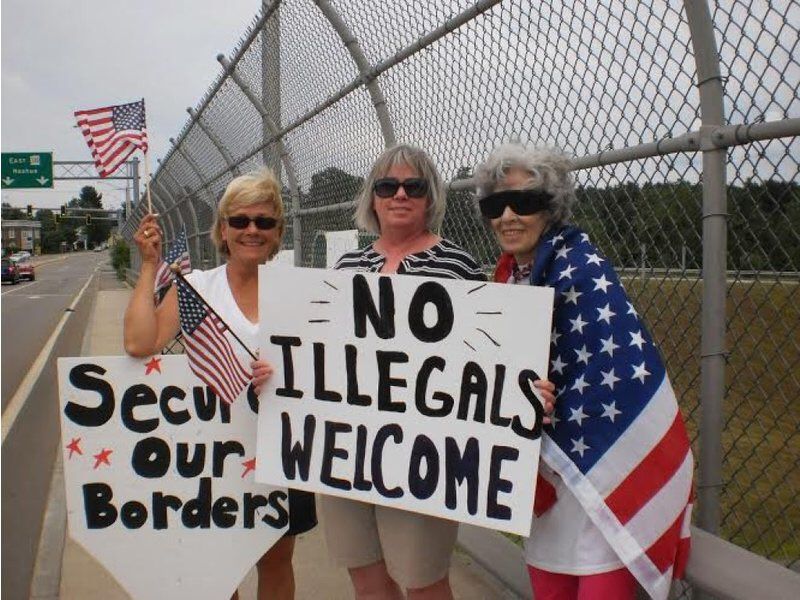 EAST
Nashua
Secure
our
Borders
NO
ILLEGALS
WELCOME